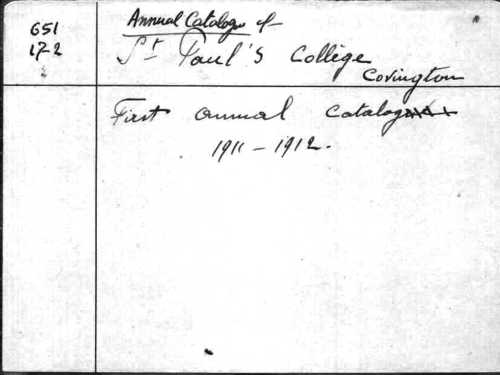 651
17-2
2
Annual Catalog of
St Paul's College
Covington
First annual Catalog
1911 - 1912.